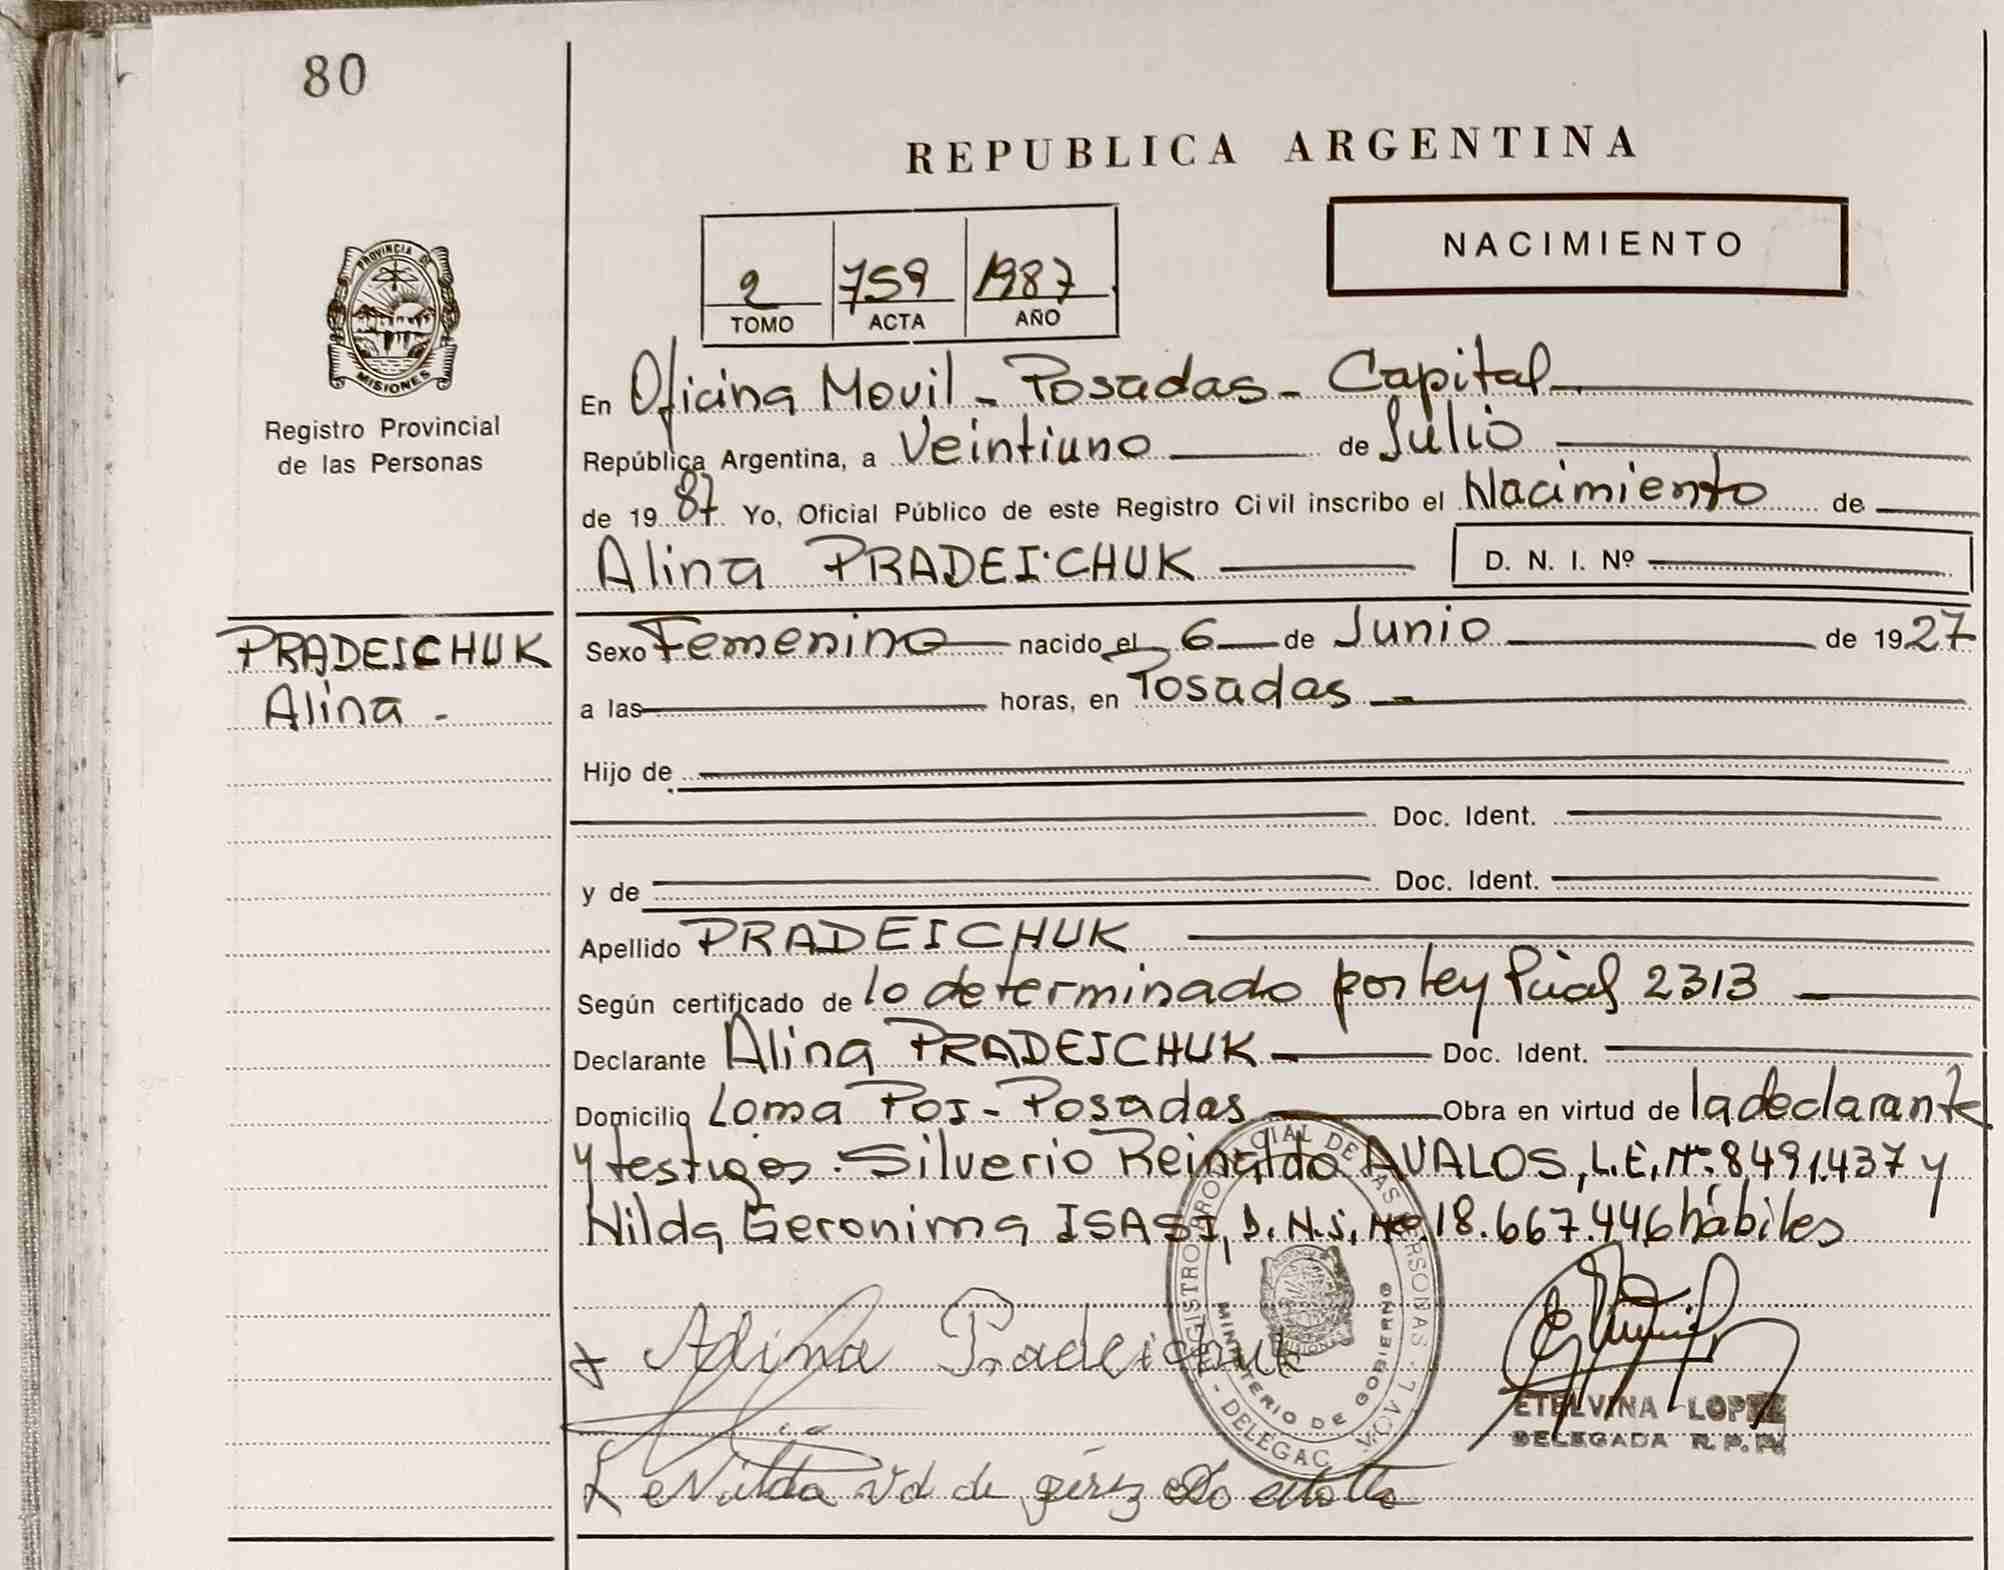 80
REPUBLICA ARGENTINA
NACIMIENTO
2 759 1987
TOMO ACTA AÑO
PROVINCIA DE
MISIONES
Registro Provincial
de las Personas
En Oficina Movil - Posadas - Capital
República Argentina, a Veintiuno de Julio
de 19 87 Yo, Oficial Público de este Registro Civil inscribo el Nacimiento de
Alina PRADEICHUK D. N. I. Nº
PRADEICHUK
Alina -
Sexo Femenino nacido el 6 de Junio de 19 27
a las horas, en Posadas
Hijo de
Doc. Ident.
y de Doc. Ident.
Apellido PRADEICHUK
Según certificado de lo determinado por ley Pcial 2313
Declarante Alina PRADEICHUK Doc. Ident.
Domicilio Loma Poi - Posadas Obra en virtud de la declarante
y testigos: Silverio Reinaldo AVALOS, L.E. Nº 8.491.437 y
Nilda Geronima ISASI, D.N.I. Nº 18.667.446 hábiles
Alina Pradeichuk
REGISTRO PROVINCIAL DE LAS PERSONAS
MINISTERIO DE GOBIERNO
ETELVINA LOPEZ
DELEGADA R. P. P.
Nilda Vd de